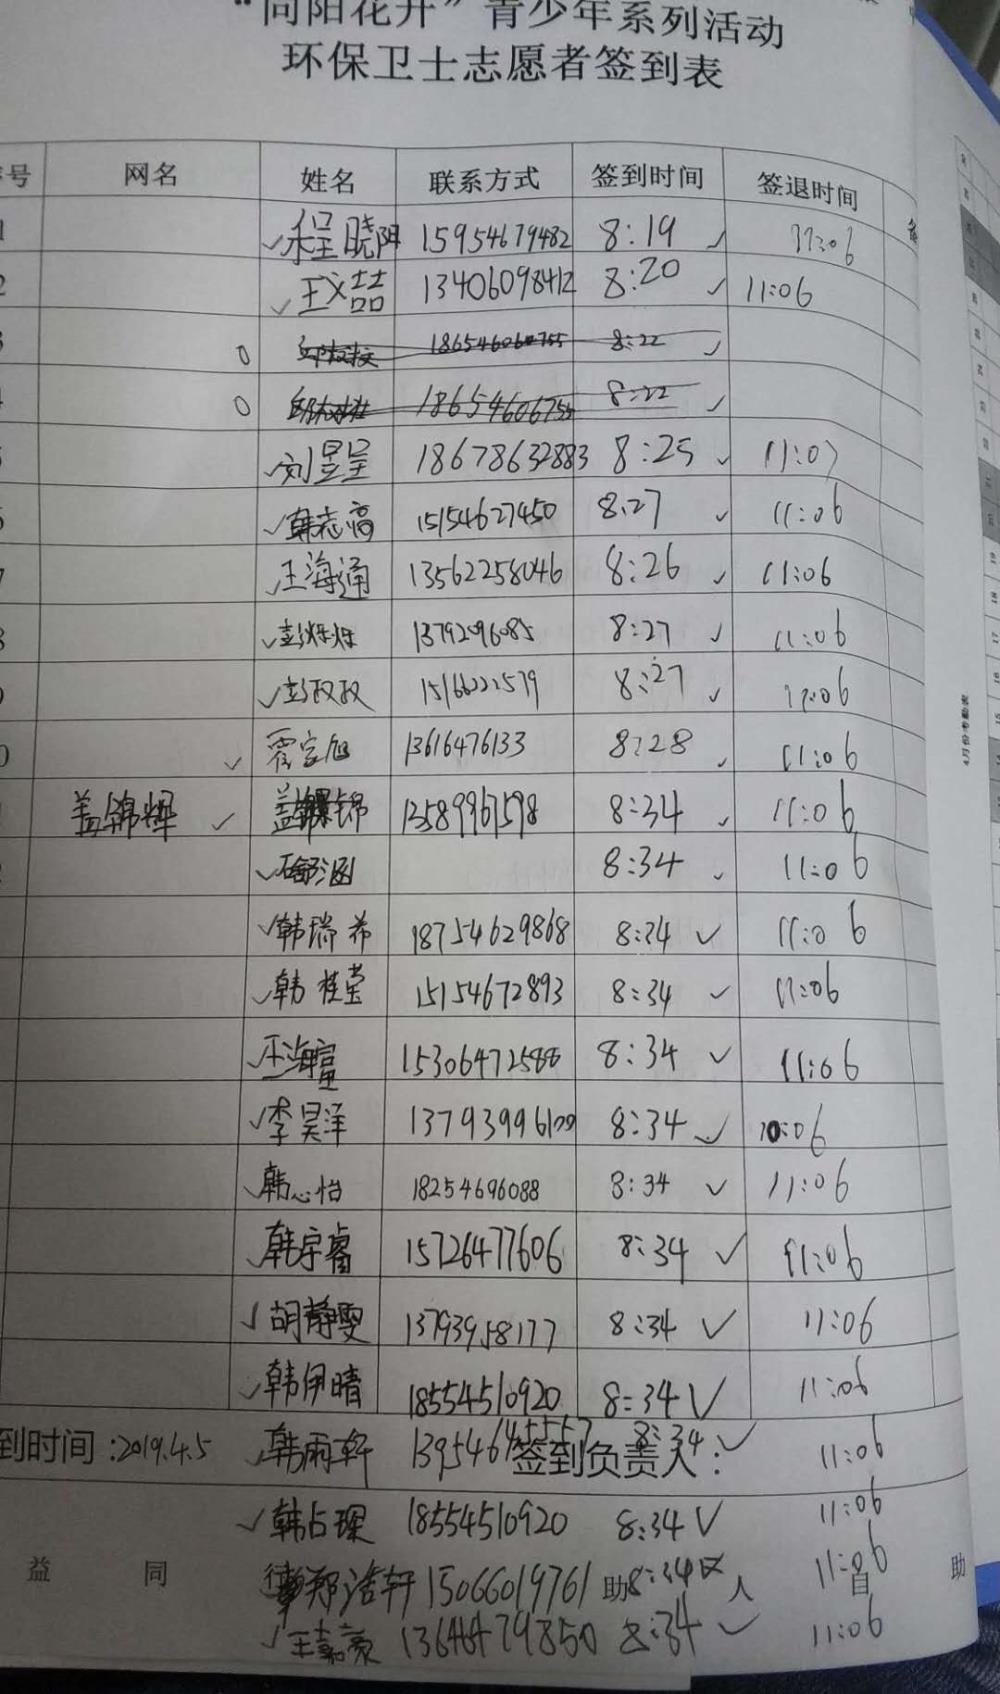 “向阳花开”青少年系列活动
环保卫士志愿者签到表
号 网名 姓名 联系方式 签到时间 签退时间
程晓阴 15954679482 8:19 11:06
王义喆 13406098412 8:20 11:06
18654606755 8:22
18654606755 8:22
刘昱呈 18678632883 8:25 11:07
韩志高 15154627450 8:27 11:06
王海通 13562258046 8:26 11:06
彭烁烁 13792096085 8:27 11:06
彭孜孜 15166222579 8:27 11:06
霍宫旭 13616476133 8:28 11:06
盖锦辉 盖锦 13589967598 8:34 11:06
8:34 11:06
韩瑞希 18754629868 8:34 11:06
韩桂莹 15154672893 8:34 11:06
王海富 15306472588 8:34 11:06
李昊洋 13793996100 8:34 10:06
韩心怡 18254696088 8:34 11:06
韩宇睿 15726477606 8:34 11:06
胡静雯 13793958177 8:34 11:06
韩伊晴 18554510920 8:34 11:06
到时间:2019.4.5 韩雨轩 13954645557 签到负责人: 8:34 11:06
韩占琛 18554510920 8:34 11:06
益 同 郑浩轩 15066019761 助 8:34 人 11:06 自 助
王嘉豪 13646479850 8:34 11:06